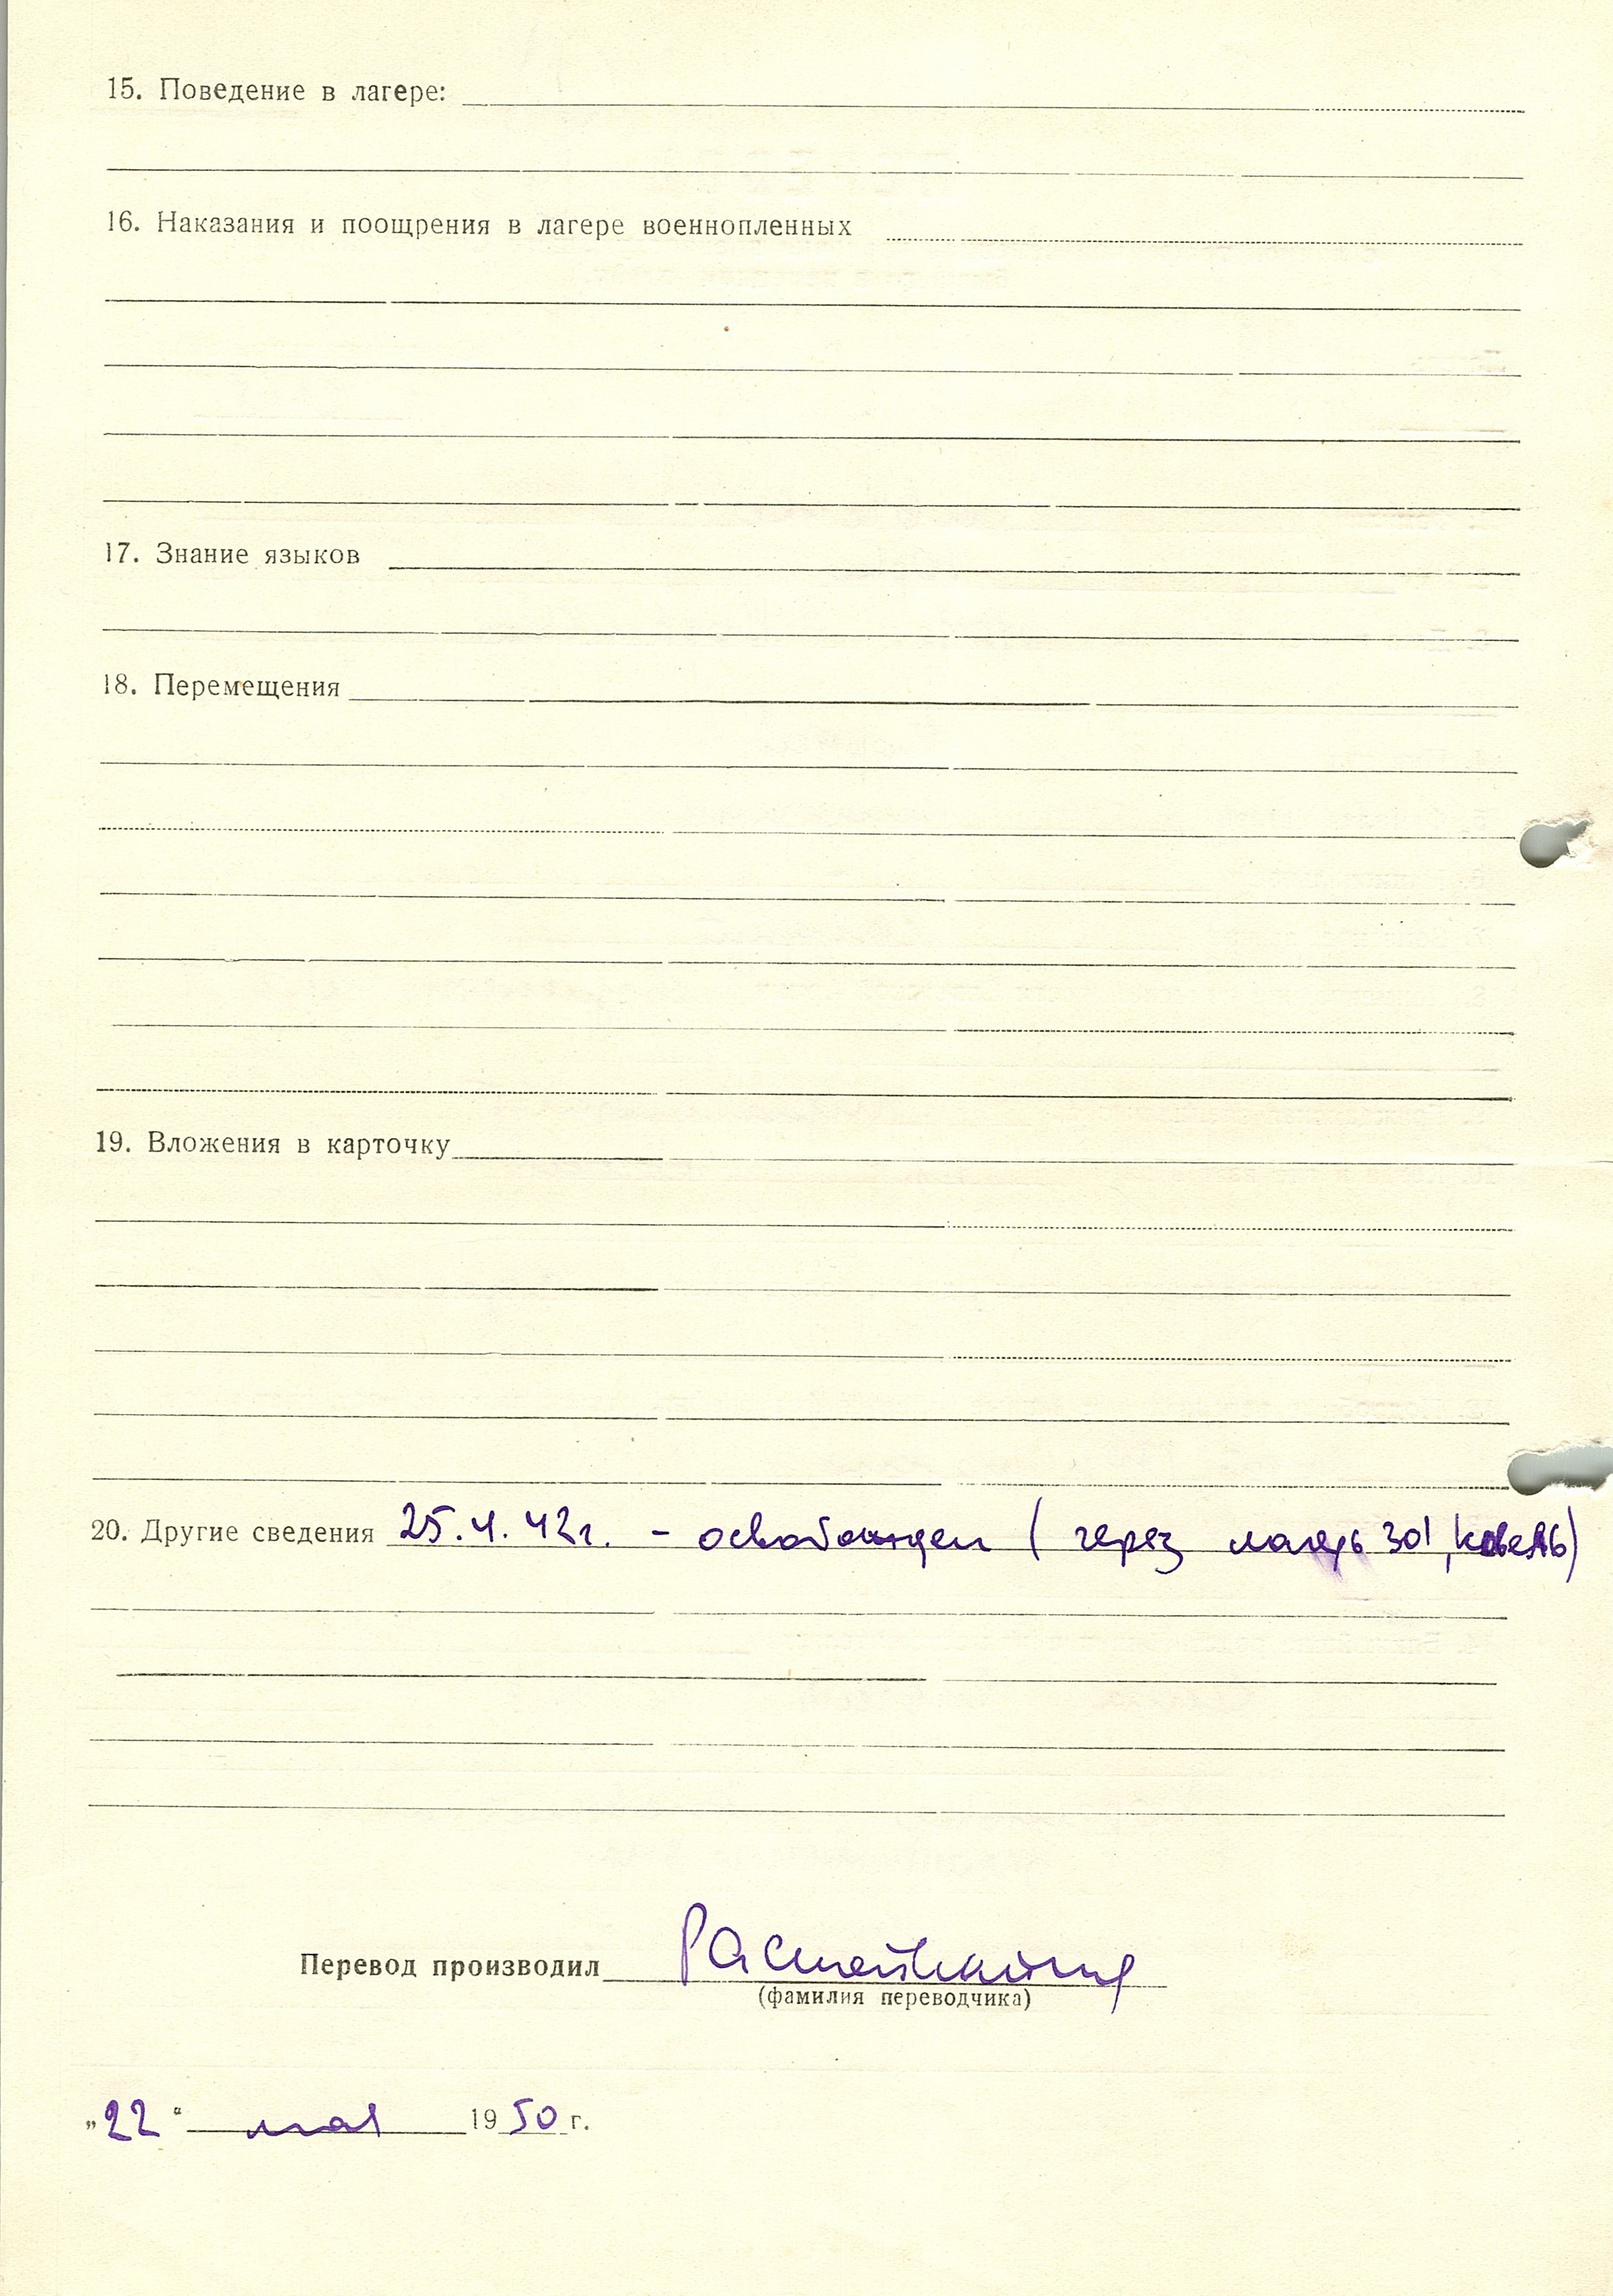 15. Поведение в лагере:
16. Наказания и поощрения в лагере военнопленных
17. Знание языков
18. Перемещения
19. Вложения в карточку
20. Другие сведения 25.4.42г. - освобожден ( через лагерь 301, Ковель)
Перевод производил
(фамилия переводчика)
„22“ мая 1950 г.